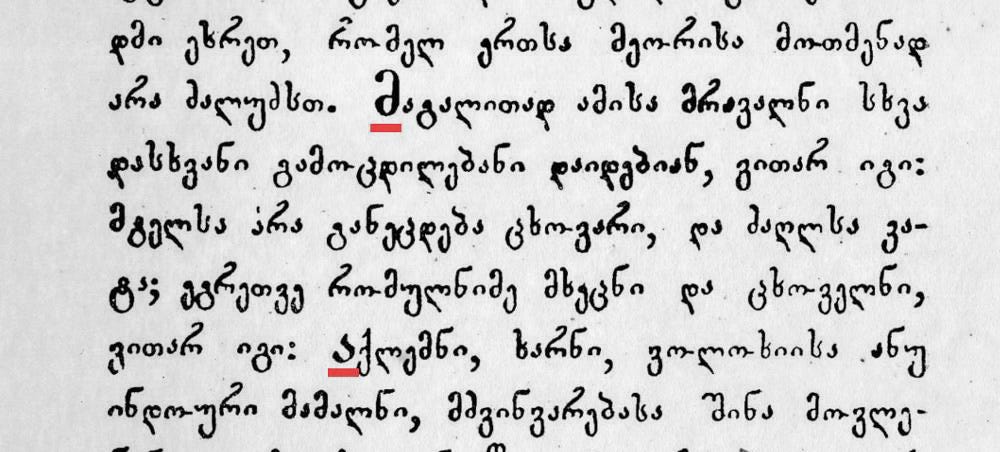 დმი ესრეთ, რომელ ერთსა მეორისა მოთმენად
არა ძალუძსთ. მაგალითად ამისა მრავალნი სხვა
დასხვანი გამოცდილებანი დაიდებიან, ვითარ იგი:
მგელსა არა განეცდება ცხოვარი, და ძაღლსა კა-
ტა; ეგრეთვე რომელნიმე მხეცნი და ცხოველნი,
ვითარ იგი: აქლემნი, ხარნი, ვოლოსიისა ანუ
ინდოური მამალნი, მძვინვარებასა შინა მოვლე-